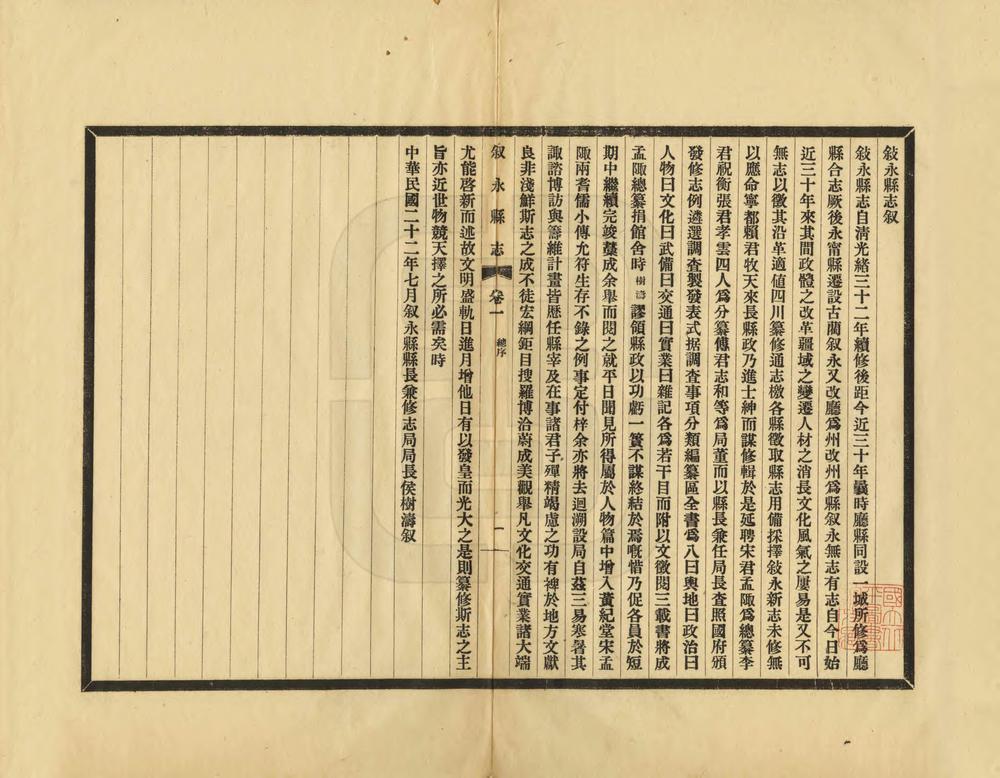 敍永縣志叙
敍永縣志自清光緒三十二年續修後距今近三十年曩時廳縣同設一城所修爲廳
縣合志厥後永甯縣遷設古藺叙永又改廳爲州改州爲縣叙永無志有志自今日始
近三十年來其間政體之改革疆域之變遷人材之消長文化風氣之屢易是又不可
無志以徵其沿革適値四川纂修通志檄各縣徵取縣志用備採擇敍永新志未修無
以應命寧都賴君牧天來長縣政乃進士紳而謀修輯於是延聘宋君孟陬爲總纂李
君祝衡張君孝雲四人爲分纂傅君志和等爲局董而以縣長兼任局長查照國府頒
發修志例遴選調查製發表式据調查事項分類編纂區全書爲八曰輿地曰政治曰
人物曰文化曰武備曰交通曰實業曰雜記各爲若干目而附以文徵閱三載書將成
孟陬總纂捐館舍時樹濤謬領縣政以功虧一簣不謀終結於焉嘅惜乃促各員於短
期中繼續完竣藳成余舉而閱之就平日聞見所得屬於人物篇中增入黃紀堂宋孟
陬兩耆儒小傳允符生存不錄之例事定付梓余亦將去迴溯設局自茲三易寒暑其
諏諮博訪與籌維計畫皆歷任縣宰及在事諸君子殫精竭慮之功有裨於地方文獻
良非淺鮮斯志之成不徒宏綱鉅目搜羅博洽蔚成美觀舉凡文化交通實業諸大端
叙永縣志 卷一 總序 一
尤能啓新而述故文明盛軌日進月增他日有以發皇而光大之是則纂修斯志之主
旨亦近世物競天擇之所必需矣時
中華民國二十二年七月叙永縣縣長兼修志局局長侯樹濤叙